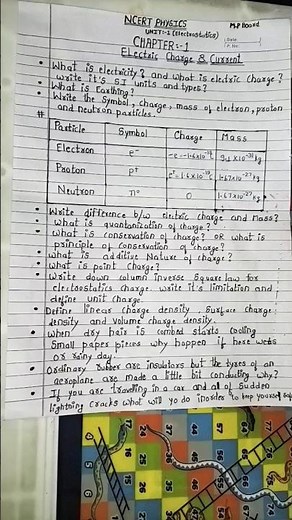 NCERT PHYSICS
M.P Board
UNIT:-1 (Electrostatics)
Date
P. No.
CHAPTER:-1
Electric Charge & Current
• What is electricity? and what is electric charge?
write it's S.I units and types?
• What is Earthing?
• Write the symbol, charge, mass of electron, proton
and neutron particles.
# Particle Symbol Charge Mass
Electron e⁻ -e=-1.6×10⁻¹⁹c 9.1×10⁻³¹kg
Proton p⁺ e⁺=1.6×10⁻¹⁹c 1.67×10⁻²⁷kg
Neutron n⁰ 0 1.67×10⁻²⁷kg
• Write difference b/w electric charge and mass?
• What is quantanization of charge?
• What is conservation of charge? OR what is
principle of conservation of charge?
• what is additive Nature of charge?
• What is point charge?
• Write down column inverse square law for
elctoostatics charge. write it's limitation and
define unit charge.
• Define linear charge density, surface charge
density and volume charge density.
• when dry hair is combed starts cooling
Small paper pieces why happen if here webs
or rainy day.
• Ordinary rubber are insulators but the tyres of an
aeroplane are made a little bit conducting why?
• If you are traveling in a car and all of sudden
lightning cracks what will yo do inorder to keep yourself safe